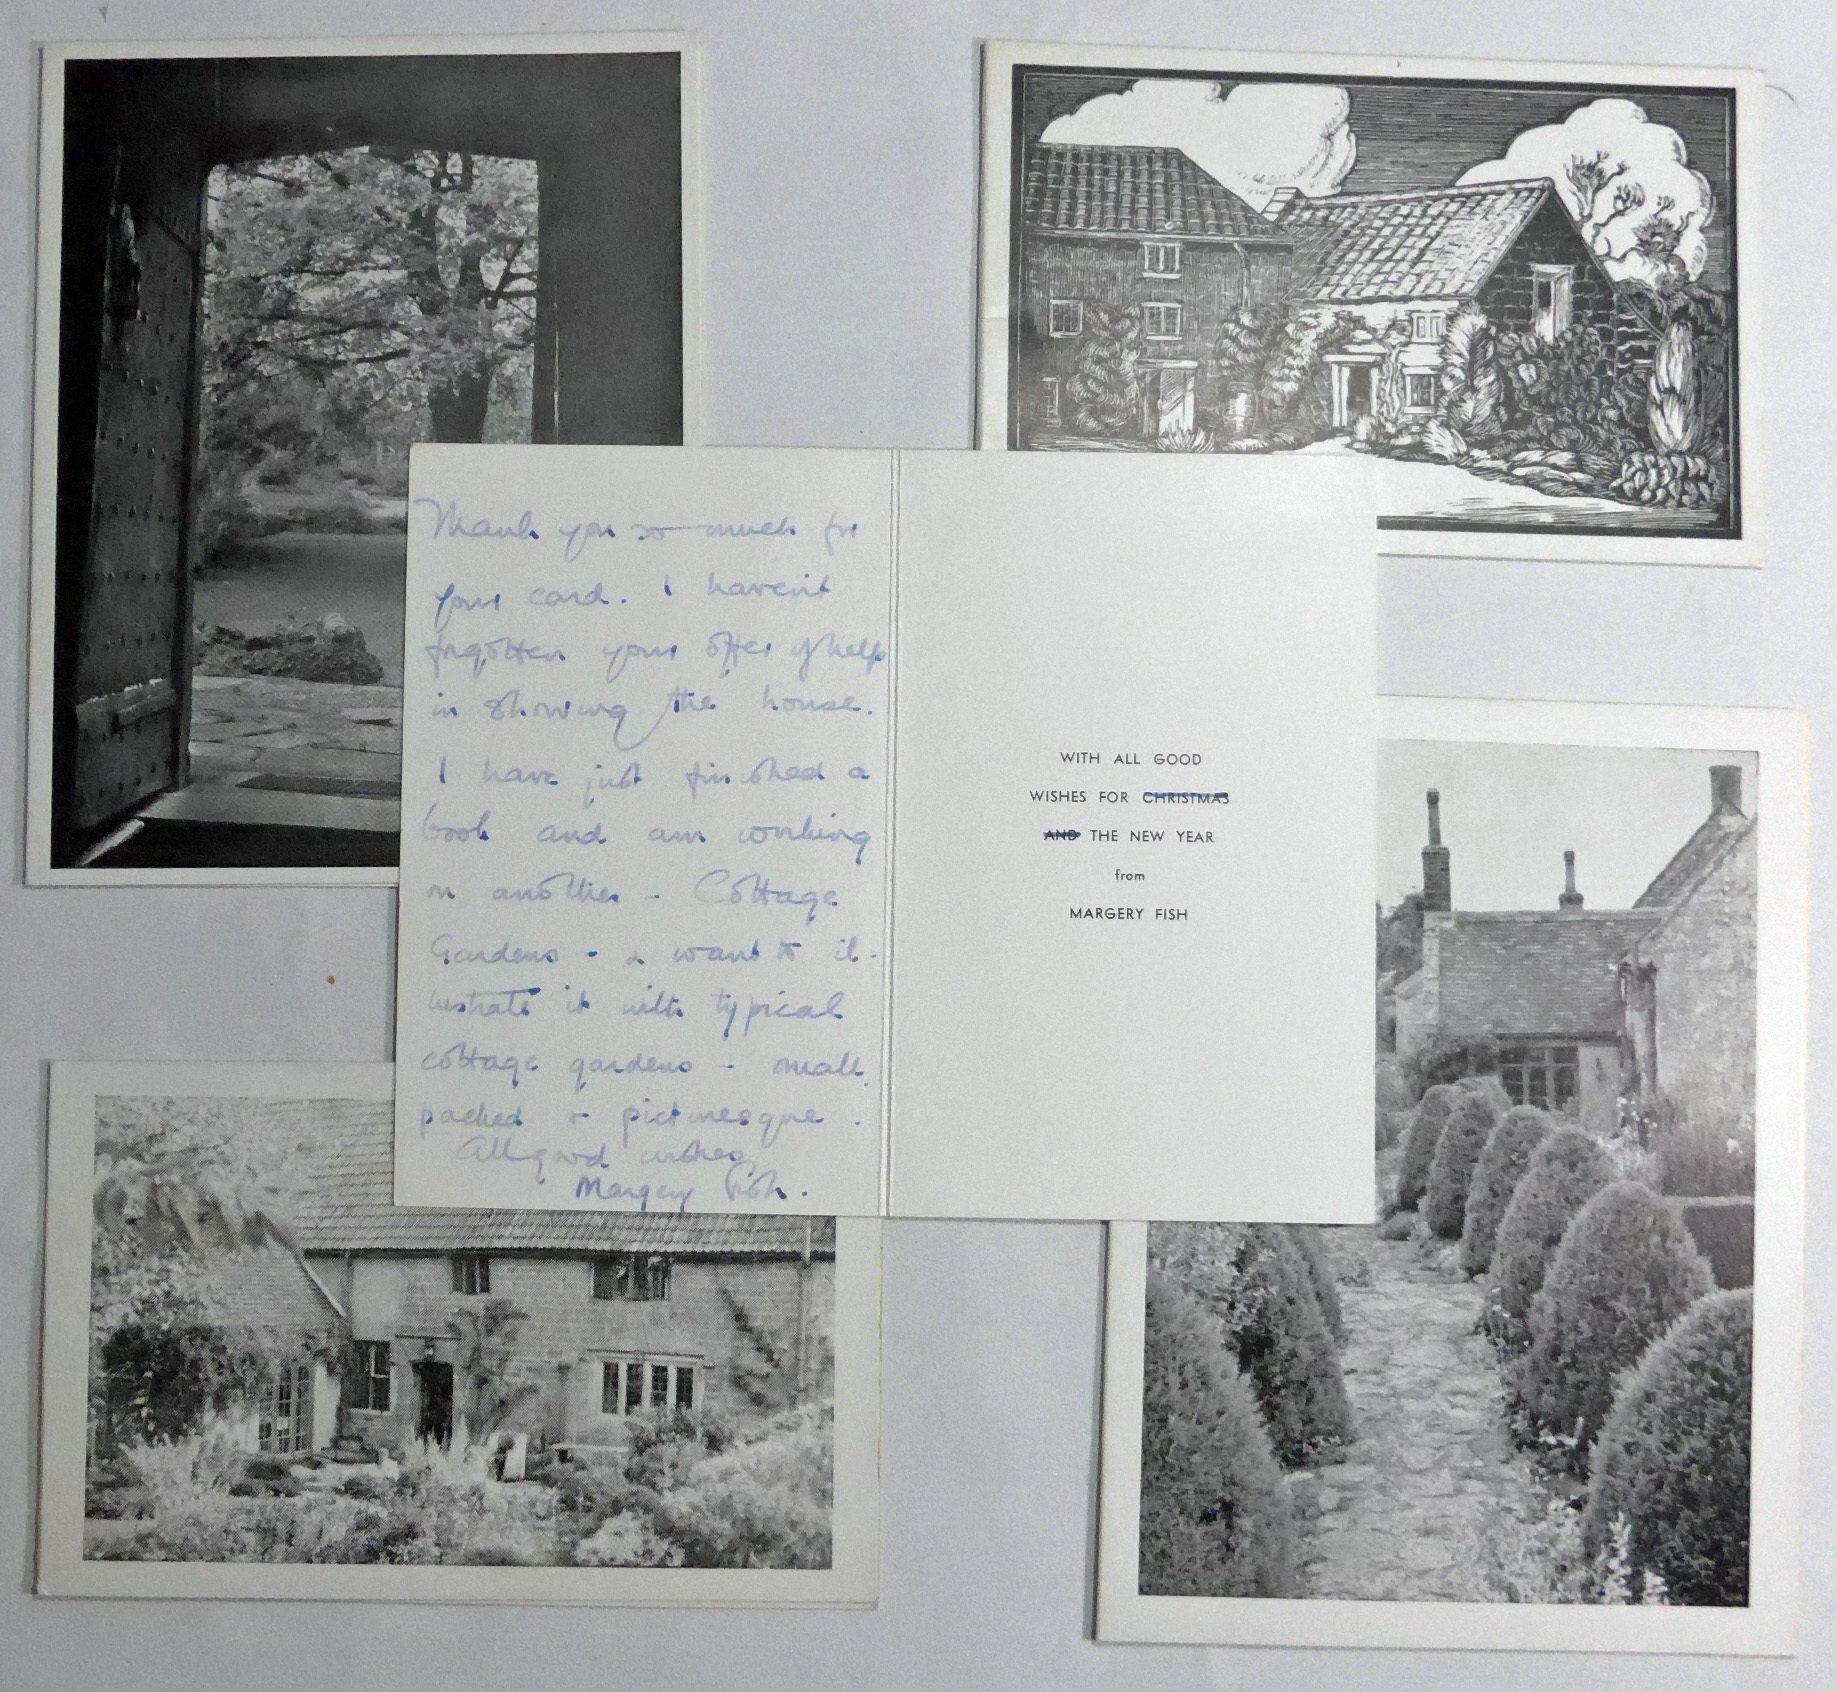 Thank you so much for
your card. I haven't
forgotten your offer of help
in showing the house.
I have just finished a
book and am working
on another - Cottage
Gardens - & want to il-
lustrate it with typical
cottage gardens - small
packed & picturesque.
All good wishes
Margery Fish.
WITH ALL GOOD
WISHES FOR CHRISTMAS
AND THE NEW YEAR
from
MARGERY FISH